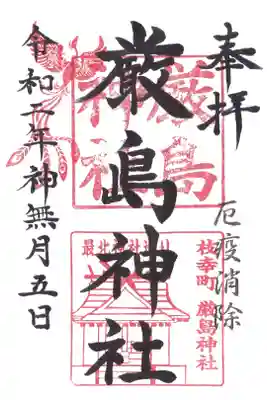 奉拝
厄疫消除
厳嶋神社
令和二年神無月五日
厳島
神社
枝幸町 厳島神社